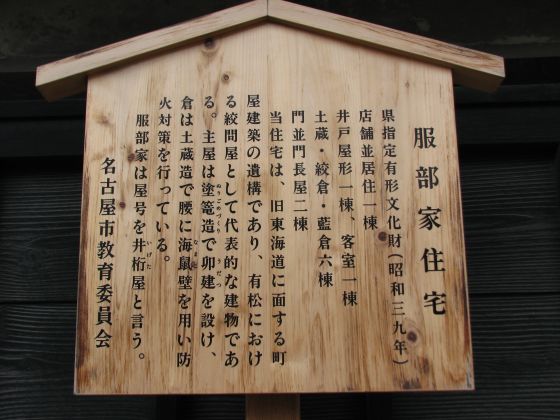 服部家住宅
県指定有形文化財(昭和三九年)
店舗並居住一棟
井戸屋形一棟、客室一棟
土蔵・絞倉・藍倉六棟
門並門長屋二棟
当住宅は、旧東海道に面する町
屋建築の遺構であり、有松におけ
る絞問屋として代表的な建物であ
る。主屋は塗篭造で卯建を設け、
ぬりごめづくり うだつ
倉は土蔵造で腰に海鼠壁を用い防
火対策を行っている。
服部家は屋号を井桁屋と言う。
いげた
名古屋市教育委員会